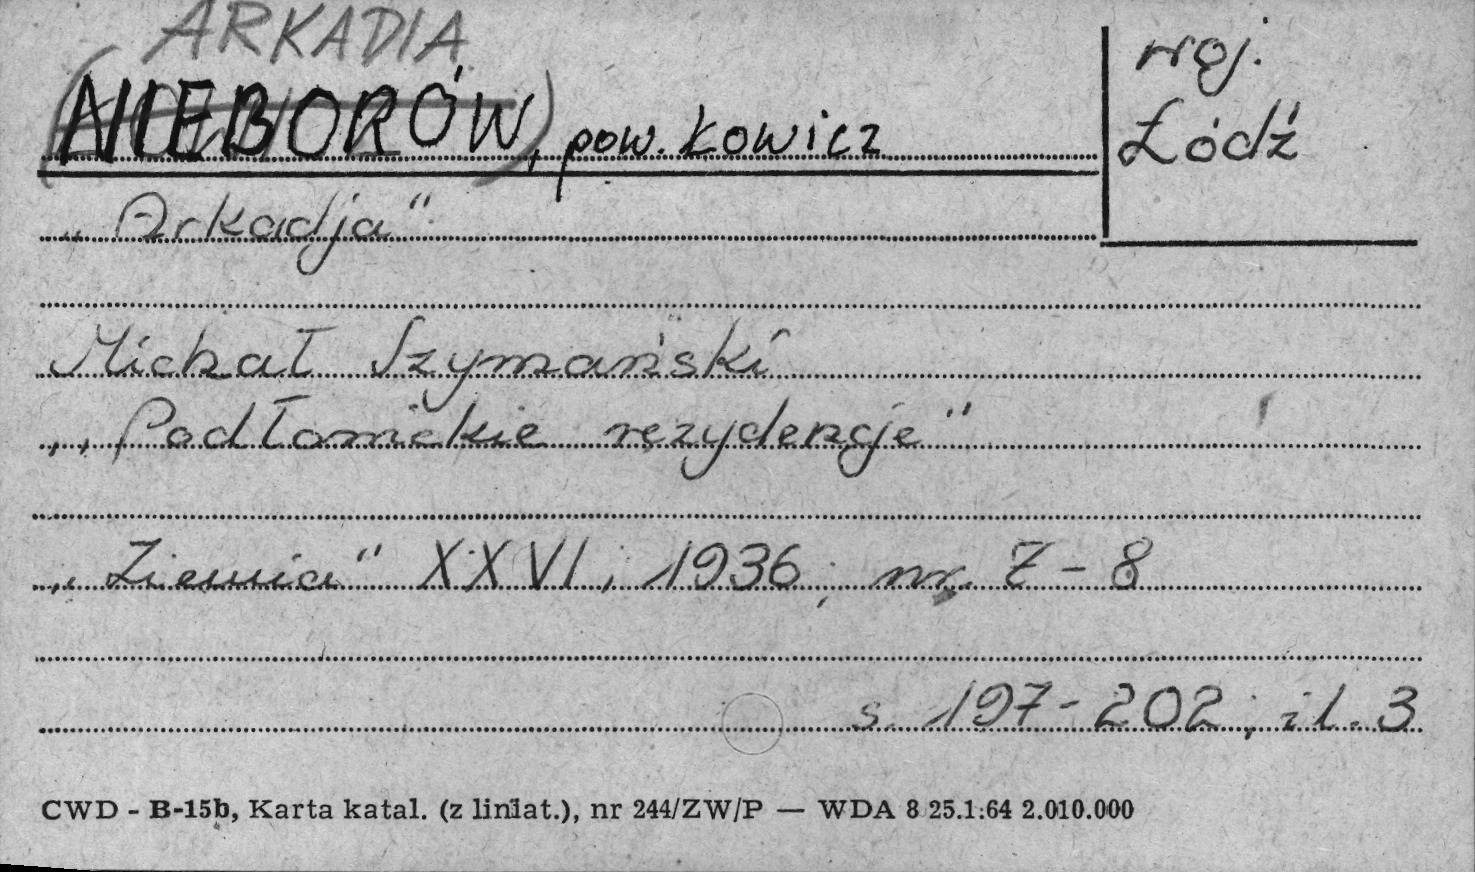 ARKADIA
(NIEBORÓW), pow. Łowicz
woj.
Łódź
„Arkadja“
Michał Szymański
„Podłowickie rezydencje“
„Ziemia“ XXVI, 1936; nr. 7-8
s. 197-202; il. 3
CWD - B-15b, Karta katal. (z liniat.), nr 244/ZW/P — WDA 8 25.1.64 2.010.000